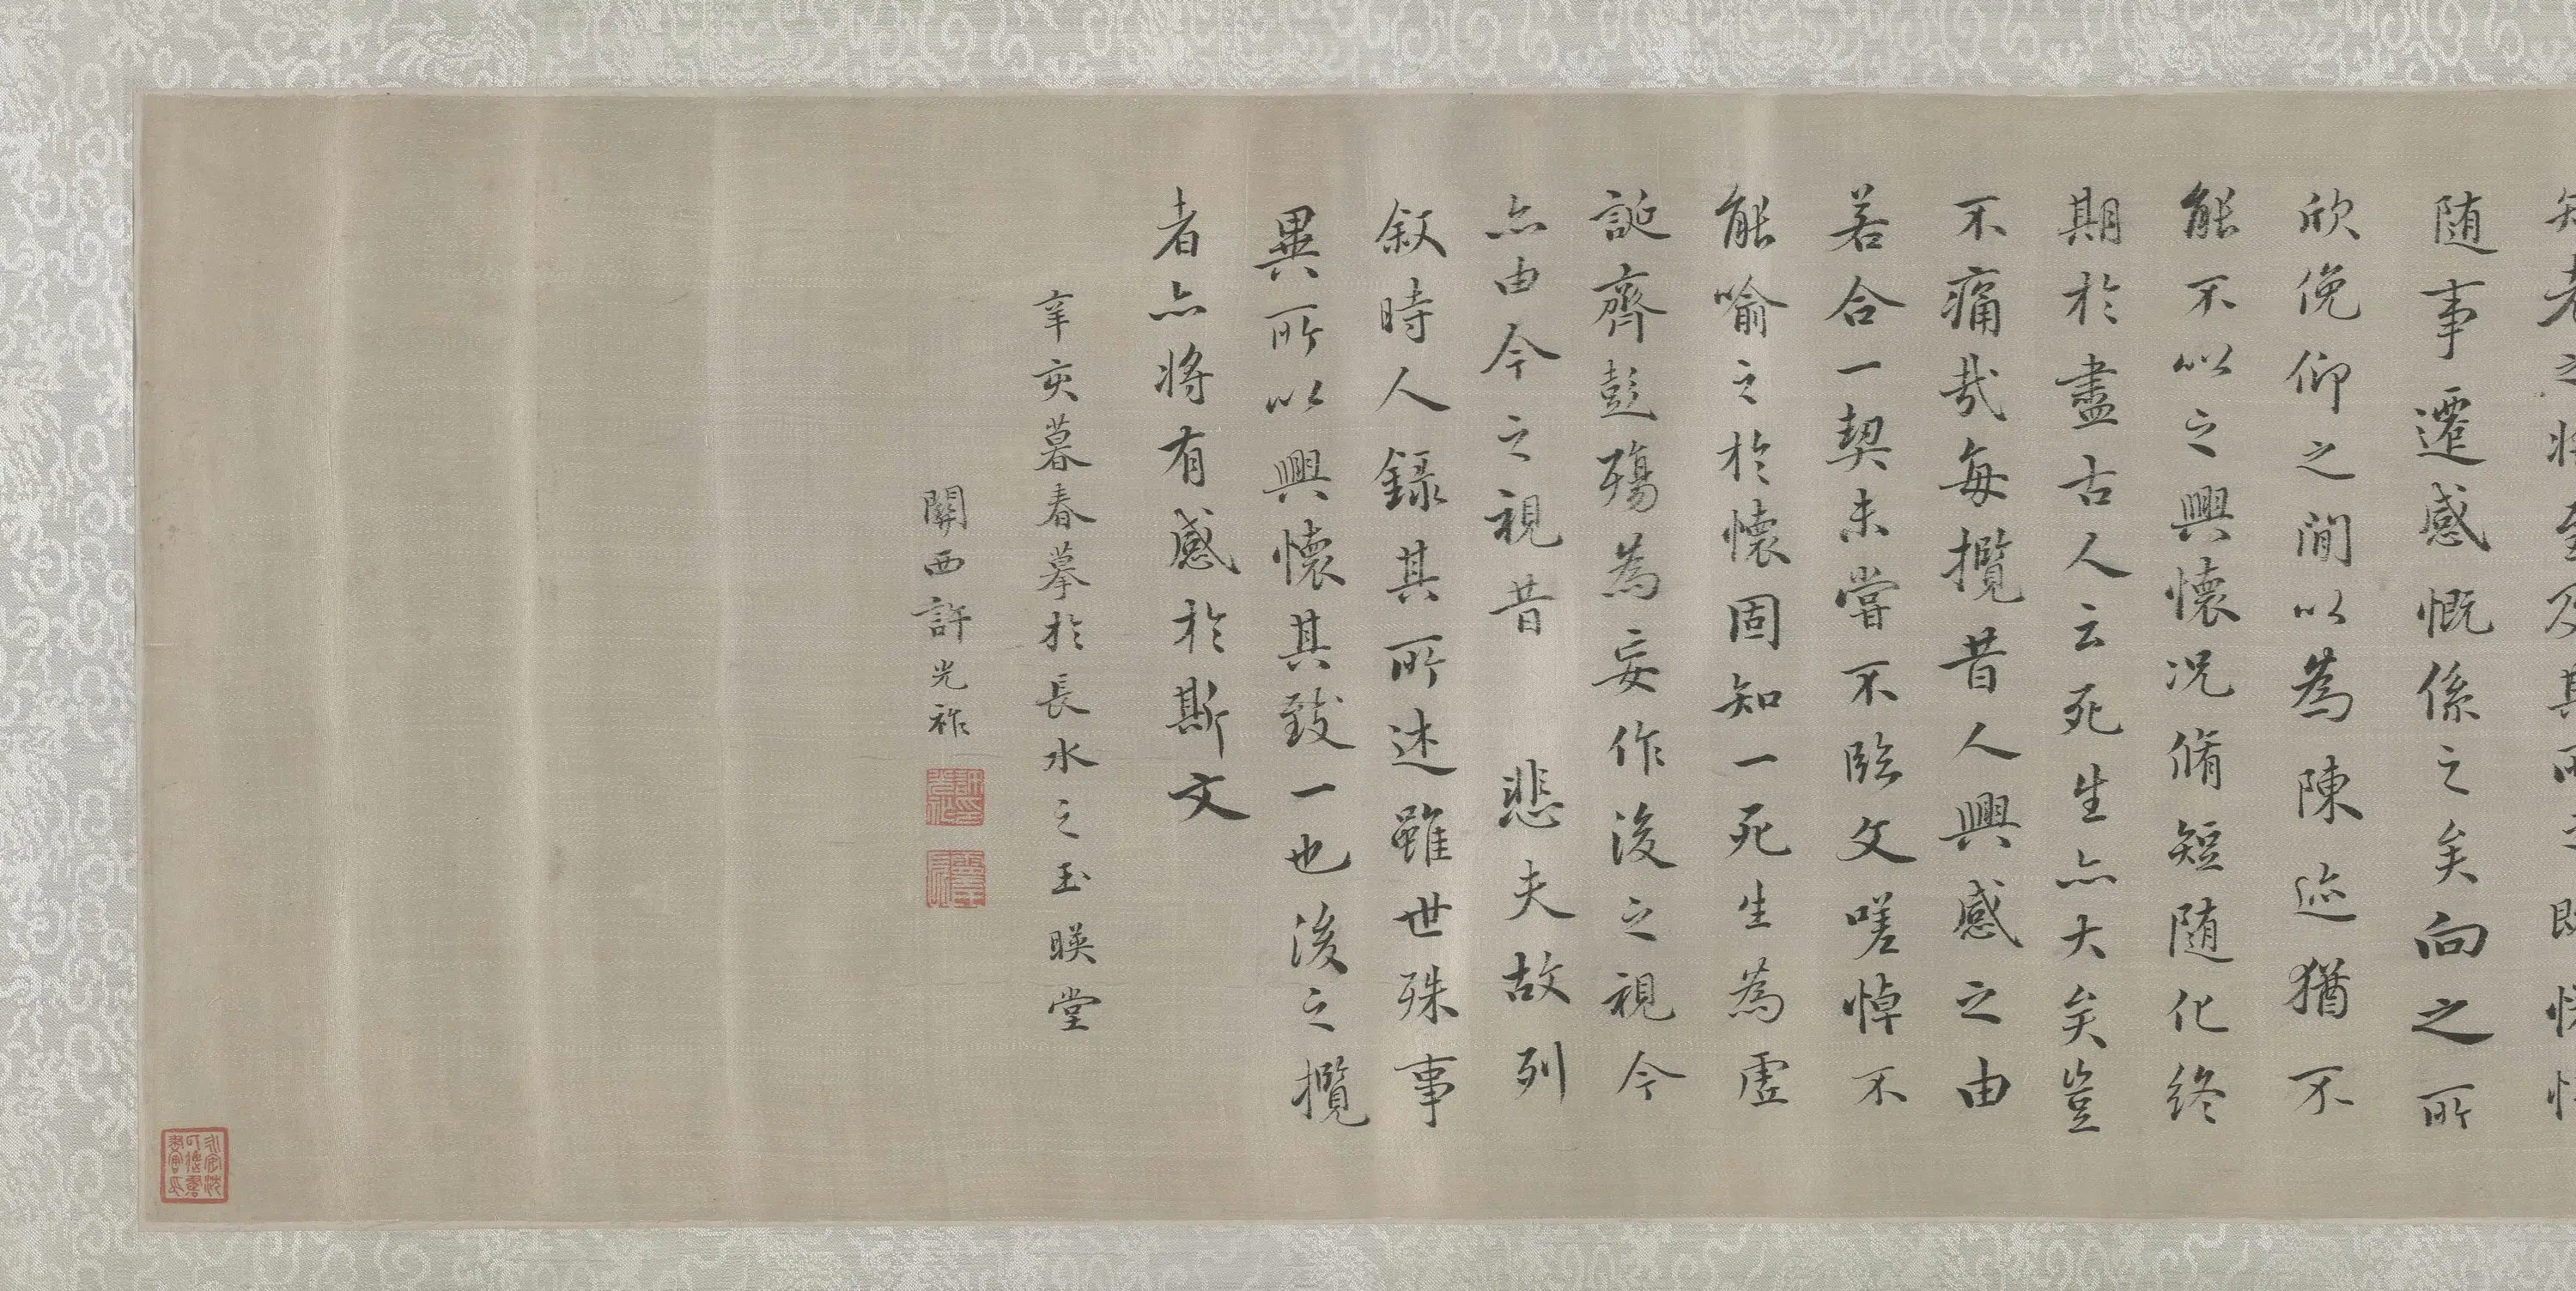 知老之將至及其所之既惓情
随事遷感慨係之矣向之所
欣俛仰之間以為陳迹猶不
能不以之興懷况脩短随化終
期於盡古人云死生亦大矣豈
不痛哉每攬昔人興感之由
若合一契未嘗不臨文嗟悼不
能喻之於懷固知一死生為虛
誕齊彭殤為妄作後之視今
亦由今之視昔 悲夫故列
叙時人錄其所述雖世殊事
異所以興懷其致一也後之攬
者亦將有感於斯文
辛亥暮春摹於長水之玉暎堂
關西許光祚